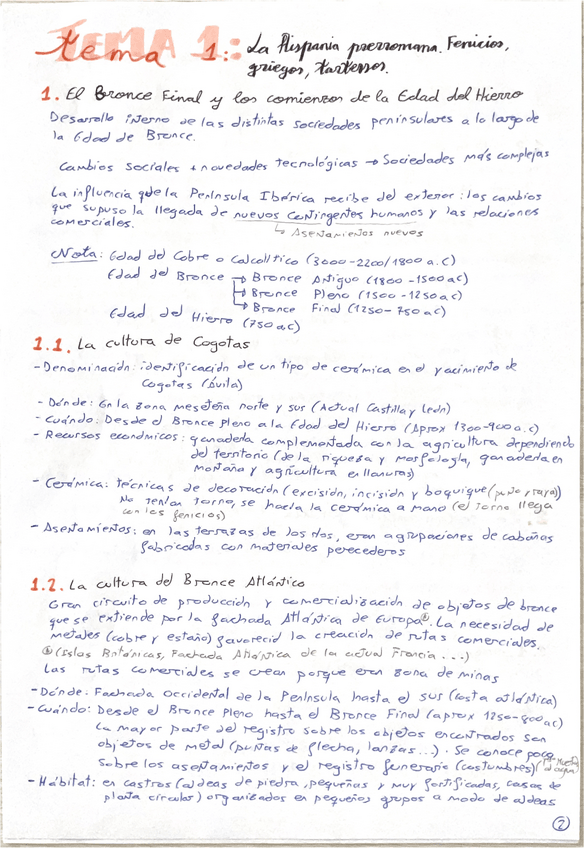 TEMA 1:
tema 1: La Hispania prerromana. Fenicios,
griegos, tartessos.
1. El Bronce Final y los comienzos de la Edad del Hierro
Desarrollo interno de las distintas sociedades peninsulares a lo largo de
la Edad de Bronce.
Cambios sociales + novedades tecnológicas → Sociedades más complejas
La influencia que la Península Ibérica recibe del exterior: los cambios
que supuso la llegada de nuevos contingentes humanos y las relaciones
comerciales.
↳ Asentamientos nuevos
Nota: Edad del Cobre o Calcolítico (3000-2200/1800 a.C)
Edad del Bronce → Bronce Antiguo (1800-1500 a.C)
→ Bronce Pleno (1500-1250 a.C)
→ Bronce Final (1250-750 a.C)
Edad del Hierro (750 a.C)
1.1. La cultura de Cogotas
- Denominación: identificación de un tipo de cerámica en el yacimiento de
Cogotas (Ávila)
- Dónde: En la zona meseteña norte y sur (Actual Castilla y León)
- Cuándo: Desde el Bronce Pleno a la Edad del Hierro (Aprox 1300-900 a.C)
- Recursos económicos: ganadería complementada con la agricultura dependiendo
del territorio (de la riqueza y morfología, ganadería en
montaña y agricultura en llanuras)
- Cerámica: técnicas de decoración (excisión, incisión y boquique (punto y raya))
No tenían torno, se hacía la cerámica a mano (el torno llega
con los fenicios)
- Asentamientos: en las terrazas de los ríos, eran agrupaciones de cabañas
fabricadas con materiales perecederos
1.2. La cultura del Bronce Atlántico
Gran circuito de producción y comercialización de objetos de bronce
que se extiende por la fachada Atlántica de Europa. La necesidad de
metales (cobre y estaño) favoreció la creación de rutas comerciales.
(Islas Británicas, Fachada Atlántica de la actual Francia...)
Las rutas comerciales se crean porque eran zona de minas
- Dónde: Fachada occidental de la Península hasta el sur (costa atlántica)
- Cuándo: Desde el Bronce Pleno hasta el Bronce Final (aprox 1250-900 a.C)
La mayor parte del registro sobre los objetos encontrados son
objetos de metal (puntas de flecha, lanzas...). Se conoce poco
sobre los asentamientos y el registro funerario (costumbres)
- Hábitat: en castros (aldeas de piedra, pequeñas y muy fortificadas, casas de
planta circular) organizados en pequeños grupos a modo de aldeas
2